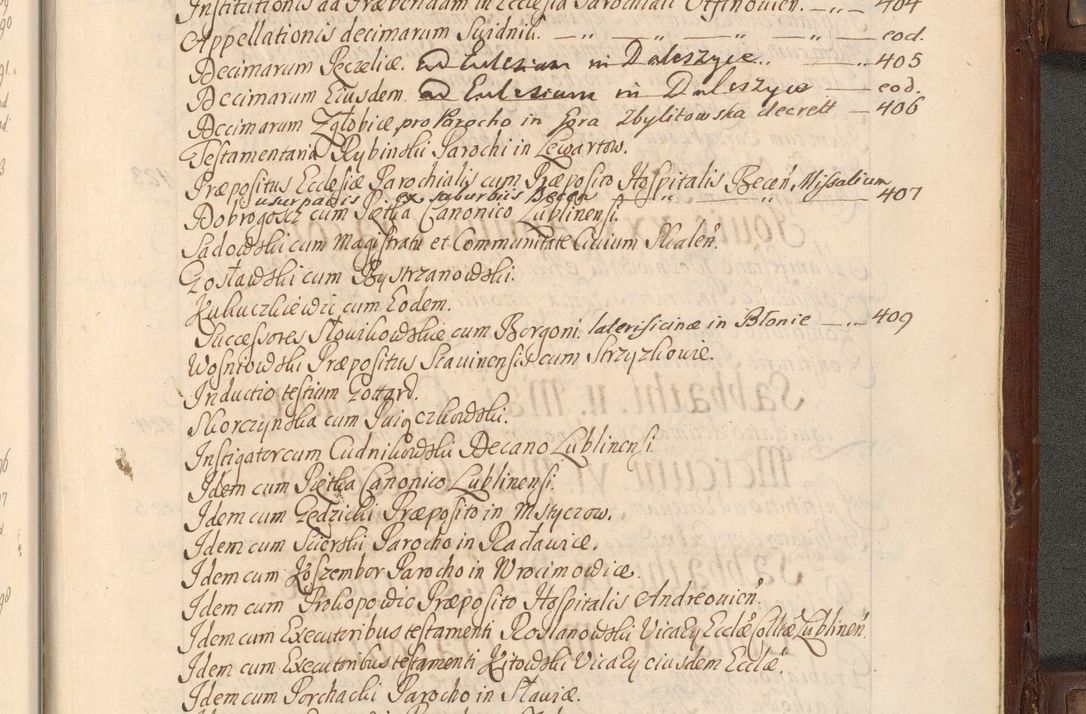 Institutionis ad Præbendam in Ecclesia Parochiali Utfinovien. — „ — 404
Appellationis decimarum Suidnik. — „ — „ — „ — „ — eod.
Decimarum Peczelicæ. ad Eulesiam in Daleszyce. „ 405
Decimarum Eiusdem. ad Eulesiam in Daleszyce — eod.
Decimarum Zgłobicæ pro Parocho in Gora Zbylitowska decrett — 406
Testamentaria Rybinski Parochi in Lewartow.
Præpositus Ecclesiæ Parochialis cum Præposito Hospitalis Becen. Missalium
usurpatis ex suburbiis Becen „ — „ — 407
Dobrogosz cum Piętka Canonico Lublinensi.
Sadowski cum Magistratu et Communitate Civium Skaleń.
Gosławski cum Bystrzanowski.
Kukuczkiewic cum Eodem.
Successores Słowikowskie cum Borgoni. laterificinæ in Błonie — „ — 409
Wosniowski Præpositus Skavinensis cum Strzyzkowie.
Inductio testium Gottard.
Skorczynska cum Paigęczkowski.
Instigator cum Cudnikowski Decano Lublinensi.
Idem cum Piętka Canonico Lublinensi.
Idem cum Gędzicki Præposito in Mstyczow.
Idem cum Scierski Parocho in Racławicæ.
Idem cum Koszembor Parocho in Wrocimowicæ.
Idem cum Prokopowic Præposito Hospitalis Andreovień.
Idem cum Executoribus testamenti Rosłanowski Vicarÿ Ecclæ Collæ Lublineń.
Idem cum Executoribus testamenti Kitowski Vicarÿ eiusdem Ecclæ
Idem cum Porchacki Parocho in Slaviæ.